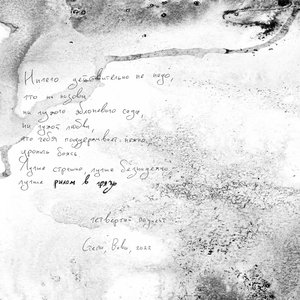 Ничего действительно не надо,
что ни назови:
ни чужого яблоневого сада,
ни чужой любви,
что тебя поддерживает нежно,
уронить боясь.
Лучше страшно, лучше безнадежно,
лучше рылом в грязь.
четвертый
2022